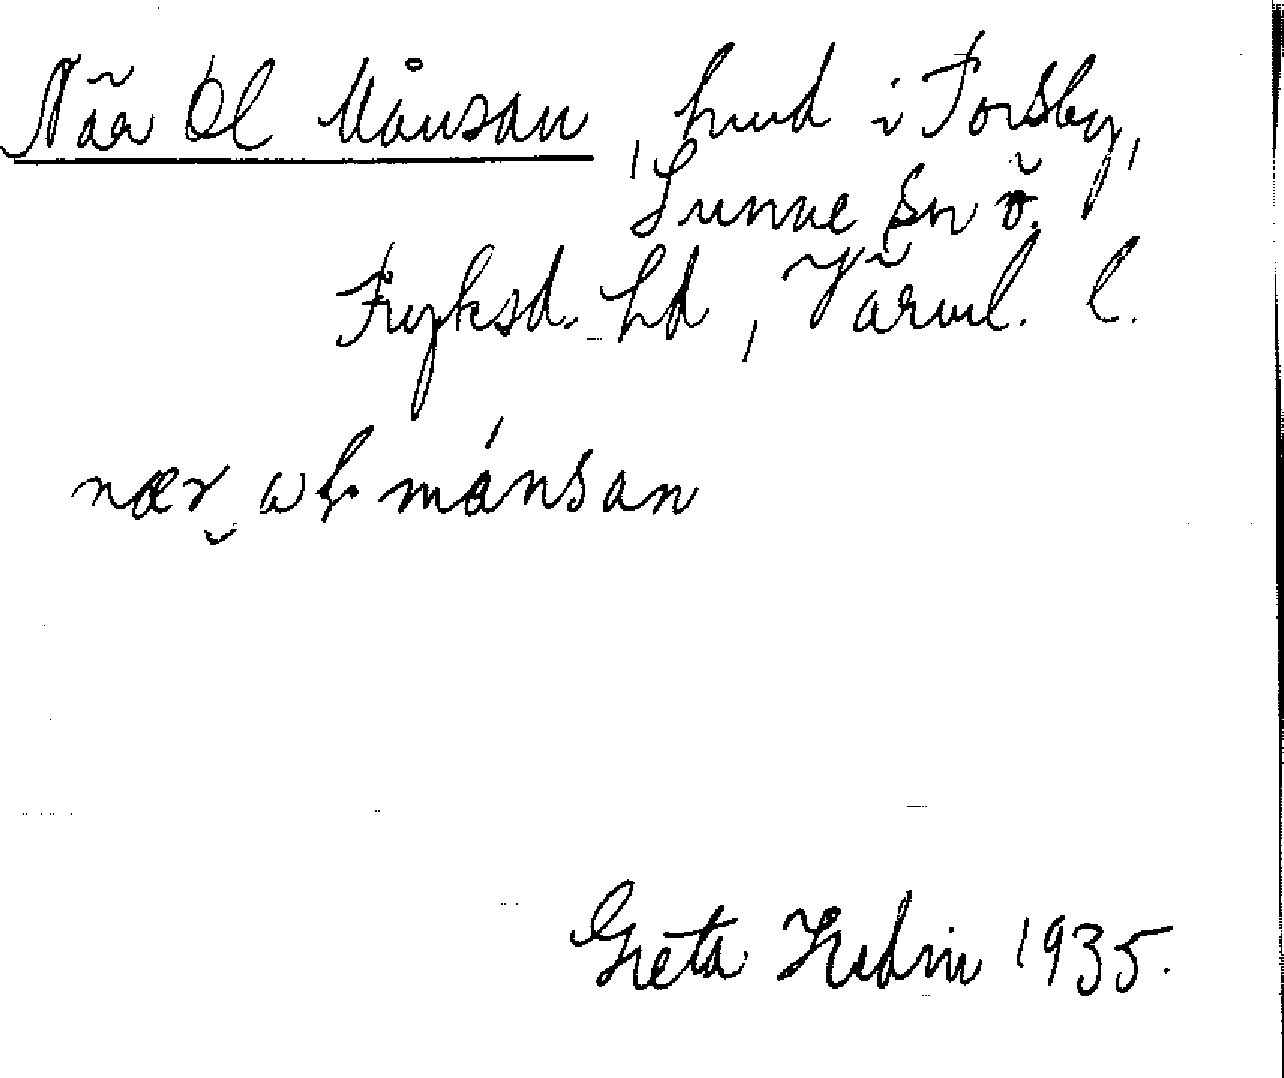 Näa Ol Månsan, hmd i Forsby,
Sunne sn ö.
Fryksd. hd, Värml. l.
nær månsan
Greta Hedin 1935.